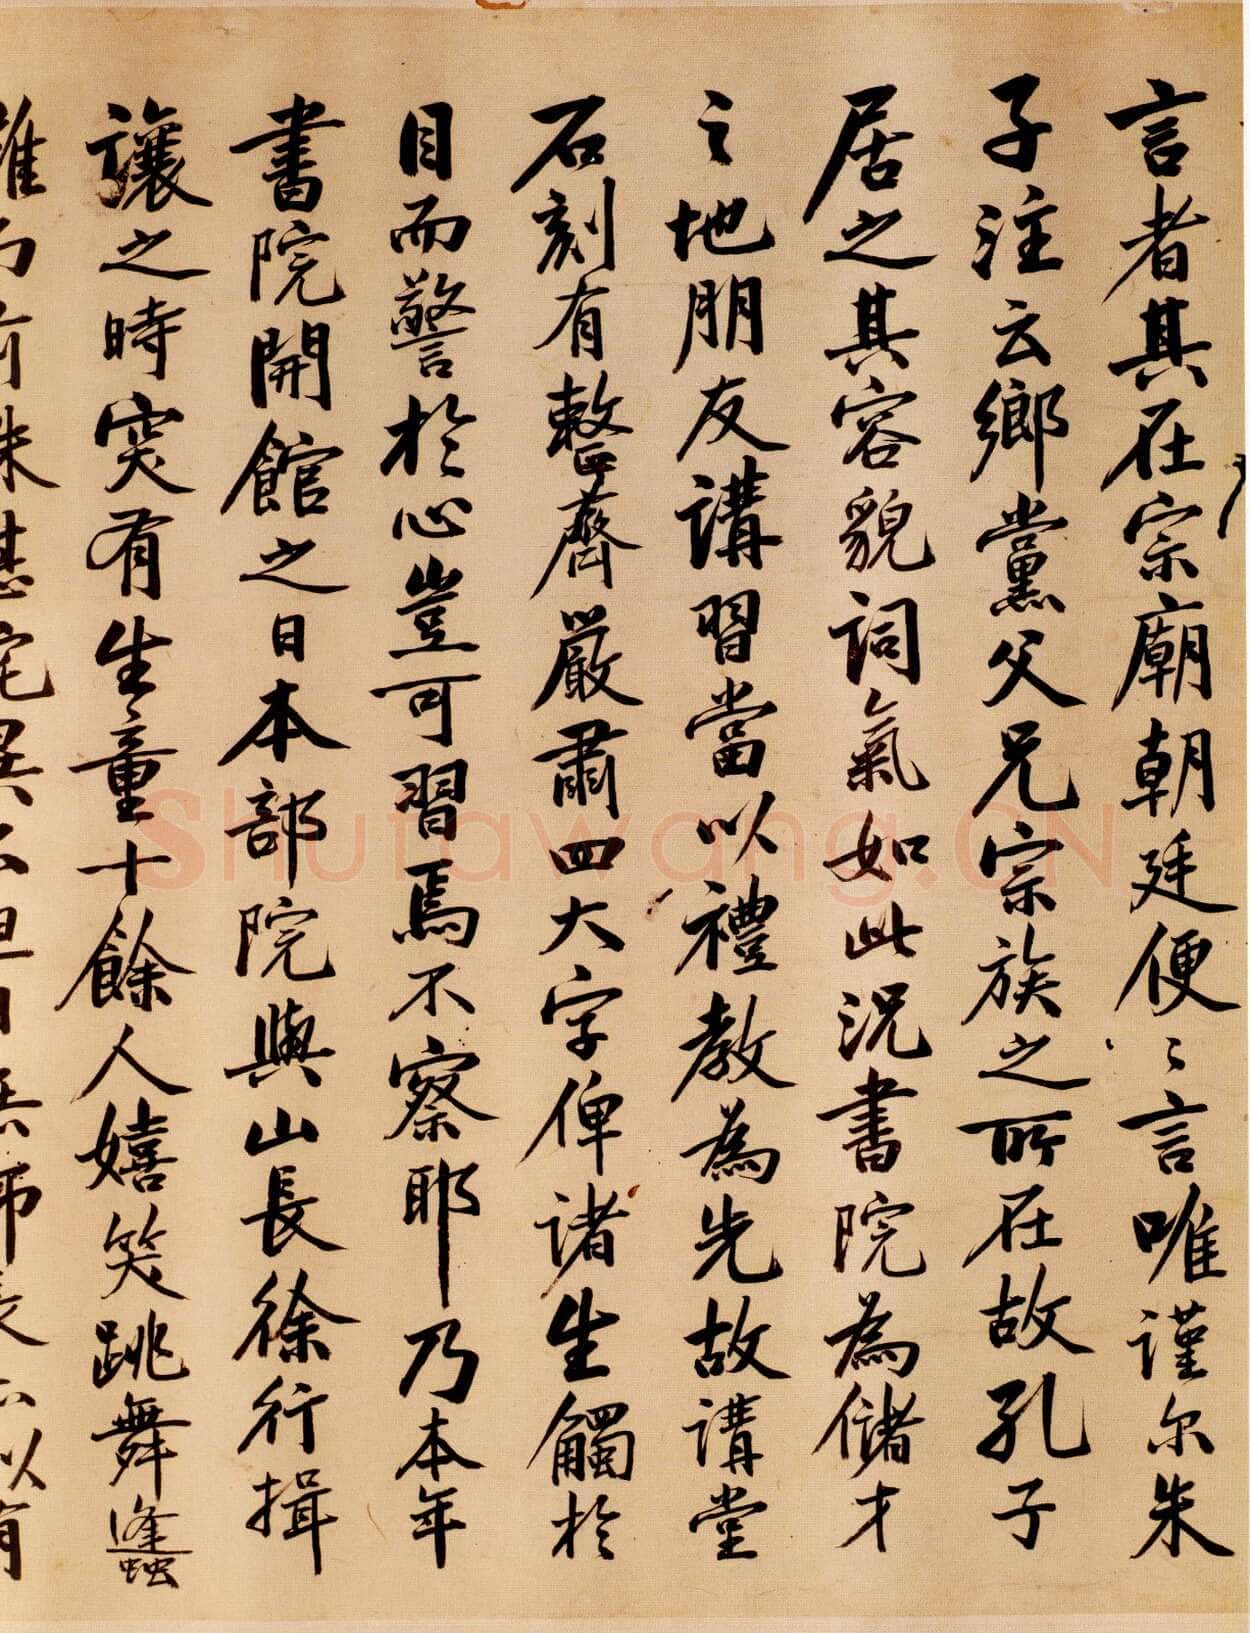 言者其在宗廟朝廷便〻言唯謹尔朱
子注云鄉黨父兄宗族之所在故孔子
居之其容貌詞氣如此況書院為儲才
之地朋友講習當以禮教為先故講堂
石刻有整齊嚴肅四大字俾諸生觸於
目而警於心豈可習焉不察耶乃本年
書院開館之日本部院與山長徐行揖
讓之時突有生童十餘人嬉笑跳舞蠭
Shufawang.CN